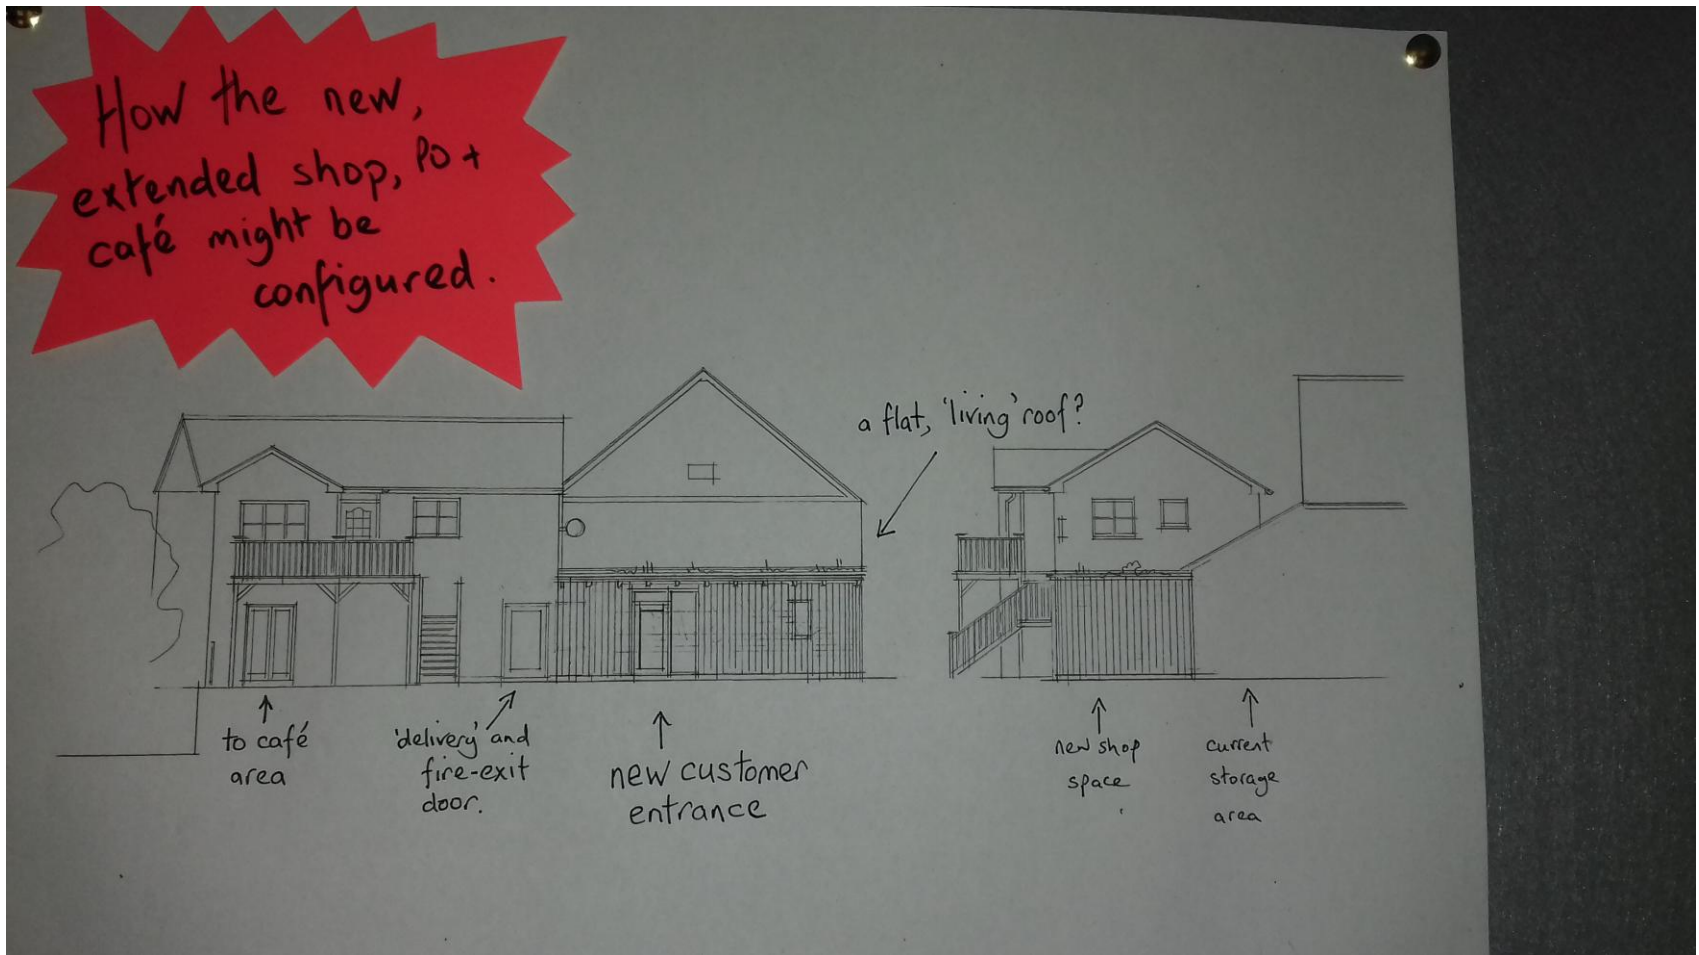 How the new,
extended shop, PO +
café might be
configured.
a flat, 'living' roof?
to café
area
'delivery' and
fire-exit
door.
new customer
entrance
new shop
space
current
storage
area